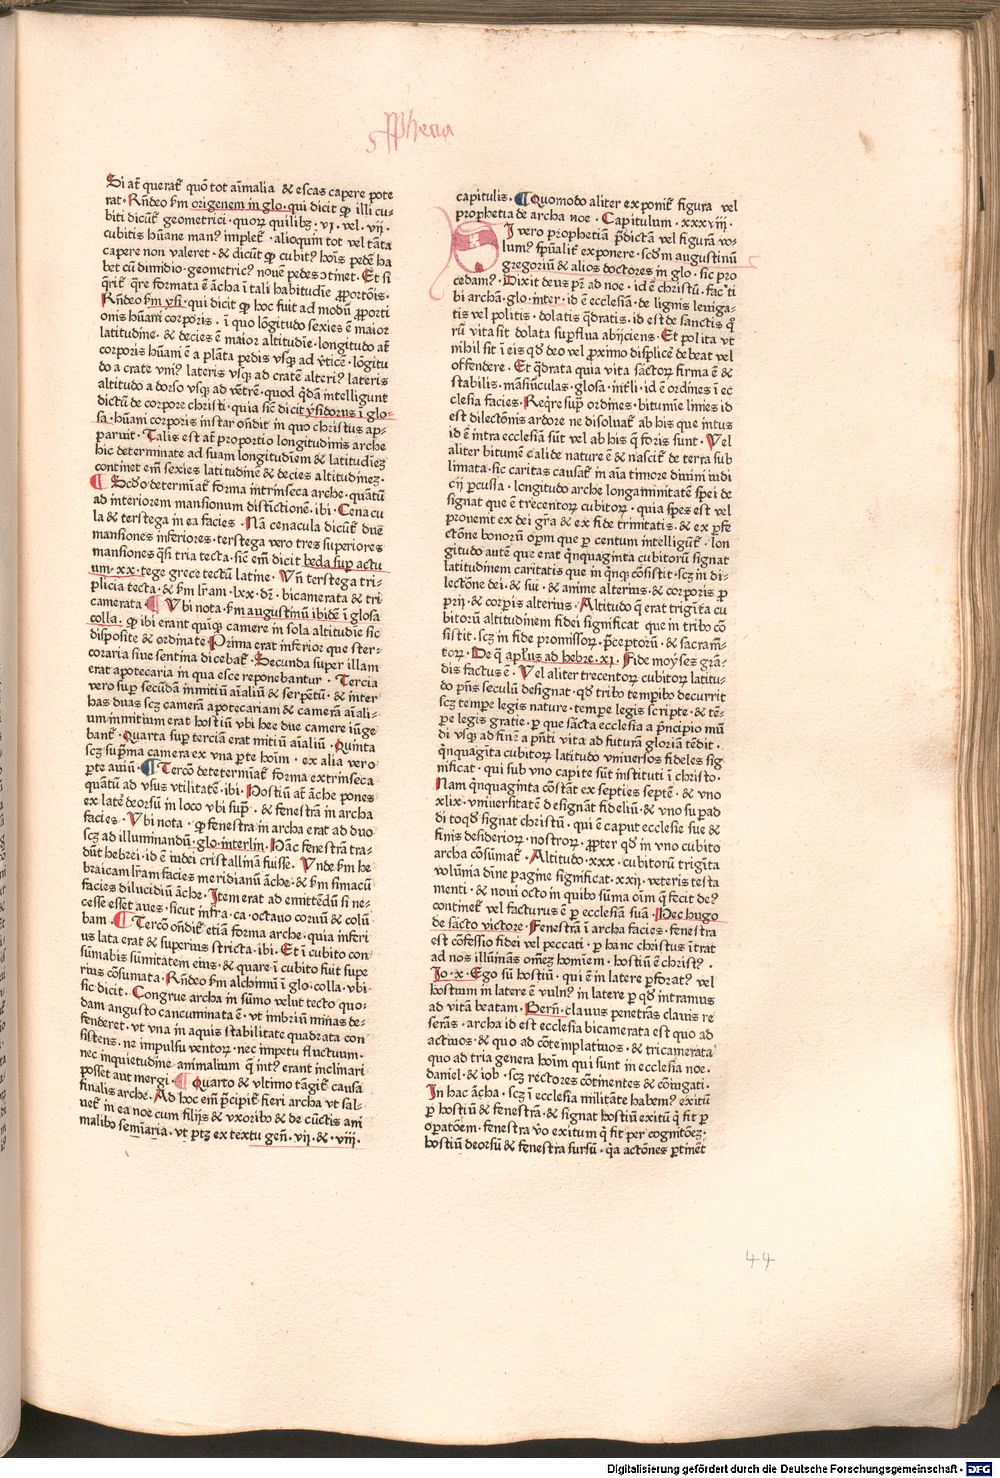 Si at̄ querat̄ quō tot aīmalia & escas capere pote
rat · Rn̄deo ẜm origenem in glo · qui dicit qp illi cu-
biti dicūt̄ geometrici · quoꝝ quilibꝫ · vi · vel · vii ·
cubitis hūane man⁹ implet̄ · alioquin tot vel tāta
capere non valeret · & dicūt̄ qp cubit⁹ hoīs pedē ha
bet cū dimidio · geometric⁹ nouē pedes ↄtinet · Et si
q̄rit̄ q̄re formata ē ācha ī tali habitudīe ꝓportōis ·
Rn̄deo ẜm ysi · qui dicit qp hoc fuit ad modū ꝓporti
onis hūani corporis · ī quo lōgitudo sexies ē maior
latitudine · & decies ē maior altitudīe · longitudo at̄
corporis hūani ē a plāta pedis vsq̢ ad v̄ticē · lōgitu
do a crate vni⁹ lateris vsq̢ ad cratē alteri⁹ lateris
altitudo a dorso vsq̢ ad vētrē · quod q̄dā intelligunt
dictū de corpore christi · quia sic̄ dicit ysidorus ī glo-
sa · hūani corporis instar on̄dit in quo christus ap-
paruit · Talis est at̄ proportio longitudinis arche
hic determinate ad suam longitudīem & latitudīeꝫ
continet em̄ sexies latitudinē & decies altitudineꝫ ·
¶ Scd̄o determīat̄ forma intrinseca arche · quātū
ad interiorem mansionum distictionē · ibi · Cenacu
la & terstega in ea facies · Nā cenacula dicūt̄ due
mansiones inferiores · terstega vero tres superiores
mansiones q̄si tria tecta · sic̄ em̄ dicit beda suꝑ actu
um · xx · tege grece tectū latine · Vn̄ terstega tri-
plicia tecta · & ẜm lr̄am · lxx · dr̄ · bicamerata & tri
camerata ¶ Vbi nota · ẜm augustinū ibidē ī glosa
colla · qp ibi erant quīq̢ camere in sola altitudīe sic
disposite & ordinate Prima erat inferior que ster-
coraria siue sentina dicebat̄ · Secunda super illam
erat apotecaria in qua esce reponebantur · Tercia
vero suꝑ secūdā inmitiū aīaliū & serpētū · & inter
has duas scꝫ camerā apotecariam & camerā aīali-
um inmitium erat hostiū vbi hee due camere iūge
bant̄ · Quarta suꝑ terciā erat mitiū aīaliū · Quinta
scꝫ supma camera ex vna ꝑte hoīm · ex alia vero
ꝑte auiū · ¶ Tercō determīat̄ forma extrinseca
quātū ad vsus vtilitatē · ibi · Hostiū at̄ āche pones
ex latē deorsū in loco vbi supͣ · & fenestrā in archa
facies · Vbi nota · qp fenestra in archa erat ad duo
scꝫ ad illuminandū · glo · interlin · Hāc fenestrā tra-
dūt hebrei · id ē iudei cristallīnā fuisse · Vnde ẜm he
braicam lr̄am facies meridianū āche · & ẜm simacū
facies dilucidiū āche · Item erat ad emittēdū si ne-
cesse esset aues · sicut infra · ca · octauo coruū & colū
bam · ¶ Tercō on̄dit̄ etiā forma arche · quia inferi
us lata erat & superius stricta · ibi · Et ī cubito con
sumabis sūmitatem eius · & quare ī cubito fuit supe
rius cōsumata · Rn̄deo ẜm alchimū ī glo · colla · vbi
sic dicit · Congrue archa in sūmo velut tecto quo-
dam angusto cancuminata ē · vt imbriū minas de-
fenderet · vt vna in aquis stabilitate quadrata con
sistens · ne impulsu ventoꝝ · nec impetu fluctuum ·
nec inquietudine animalium q̄ int⁹ erant inclinari
posset aut mergi · ¶ Quarto & vltimo tāgit̄ causa
finalis arche · Ad hoc em̄ p̄cipit̄ fieri archa vt sal-
uet̄ in ea noe cum filijs & vxoribꝰ & de cūctis ani
malibꝰ semīaria · vt ptꝫ ex textu gen̄ · vii · & · viii ·
capitulis · ¶ Quomodo aliter exponit̄ figura vel
prophetia de archa noe · Capitulum · xxxviii ·
SI vero prophetiā p̄dictā vel figurā vo-
lum⁹ sp̄ualit̄ exponere · scd̄m augustinū
gregoriū & alios doctores in glo · sic pro
cedam⁹ · Dixit deus pr̄ ad noe · id ē christū · fac ti
bi archā · glo · inter · id ē ecclesiā · de lignis leuiga-
tis vel politis · dolatis q̄dratis · id est de sanctis q̄
rū vita sit dolata suꝑflua abijciens · Et polita vt
nihil sit ī eis qd̄ deo vel ꝓximo displicē debeat vel
offendere · Et q̄drata quia vita sāctoꝝ firma ē &
stabilis · māsiūculas · glosa · int̄li · id ē ordines ī ec
clesia facies · Reqͥre suꝑ ordines · bitumīe līnies id
est dilectōnis ardore ne disoluat̄ ab his que intus
id ē intra ecclesiā sūt vel ab his q̄ foris sunt · Vel
aliter bitumē calide nature ē & nascit̄ de terra sub
limata · sic caritas causat̄ in aīa timore diuini iudi
cij ꝑcussa · longitudo arche longanimitatē spei de
signat que ē trecentoꝝ cubitoꝝ · quia spes est vel
prouenit ex dei gr̄a & ex fide trinitatis · & ex ꝑfe
ctōne bonorū oꝑm que ꝑ centum intelligūt̄ · lon
gitudo autē que erat q̄nquaginta cubitorū signat
latitudinem caritatis que in q̄nq̢ cōsistit · scꝫ in di-
lectōne dei · & sui · & anime alterius · & corporis ꝓ
prij · & corꝑis alterius · Altitudo q̄ erat trigīta cu
bitorū altitudinem fidei significat que in tribꝰ cō
sistit · scꝫ in fide promissoꝝ · p̄ceptorū · & sacram̄-
toꝝ · De q̄ apl̄us ad hebre · xi · Fide moyses grā-
dis factus ē · Vel aliter trecentoꝝ cubitoꝝ latitu-
do p̄ns seculū designat · qd̄ tribꝰ tempibꝰ decurrit
scꝫ tempe legis nature · tempe legis scripte · & tē-
ꝑe legis gratie · ꝑ que sācta ecclesia a p̄ncipio mū
di vsq̢ ad finē a p̄nti vita ad futurā gloriā tēdit ·
q̄nquagīta cubitoꝝ latitudo vniuersos fideles sig
nificat · qui sub vno capite sūt instituti ī christo ·
Nam q̄nquaginta cōstāt ex septies septē · & vno
xlix · vniuersitatē designāt fideliū · & vno suꝑad
di toqd̄ signat christū · qui ē caput ecclesie sue &
finis desiderioꝝ · nostroꝝ · ꝓpter qd̄ in vno cubito
archa cōsūmat̄ · Altitudo · xxx · cubitorū trigīta
volūnia dīne pagine significat · xxii · veteris testa
menti · & noui octo in quibꝰ sūma oīm q̄ fecit de⁹
continet̄ vel facturus ē ꝑ ecclesiā suā · Hec hugo
de sācto victore · Fenestrā ī archa facies · fenestra
est cōfessio fidei vel peccati · ꝑ hanc christus ītrat
ad nos illūinās om̄eꝫ homīem · hostiū ē christ⁹ ·
Io · x · Ego sū hostiū · qui ē in latere ꝑforat⁹ vel
hostium in latere ē vuln⁹ in latere ꝑ qd̄ intramus
ad vitā beatam · Bern̄ · clauus penetrās clauis re
serās · archa id est ecclesia bicamerata est quo ad
actiuos · & quo ad cōtemplatiuos · & tricamerata
quo ad tria genera hoīm qui sunt in ecclesia noe ·
daniel · & iob · scꝫ rectores cōtinentes & cōiugati ·
In hac ācha · scꝫ ī ecclesia militāte habem⁹ exitū
ꝑ hostiū & fenestrā · & signat hostiū exitū q̄ fit ꝑ
oꝑatōem · fenestra v̄o exitum q̄ fit per cognitōeꝫ ·
hostiū deorsū & fenestra sursū · q̄a actōnes ꝑtinēt
44
Digitalisierung gefördert durch die Deutsche Forschungsgemeinschaft - DFG